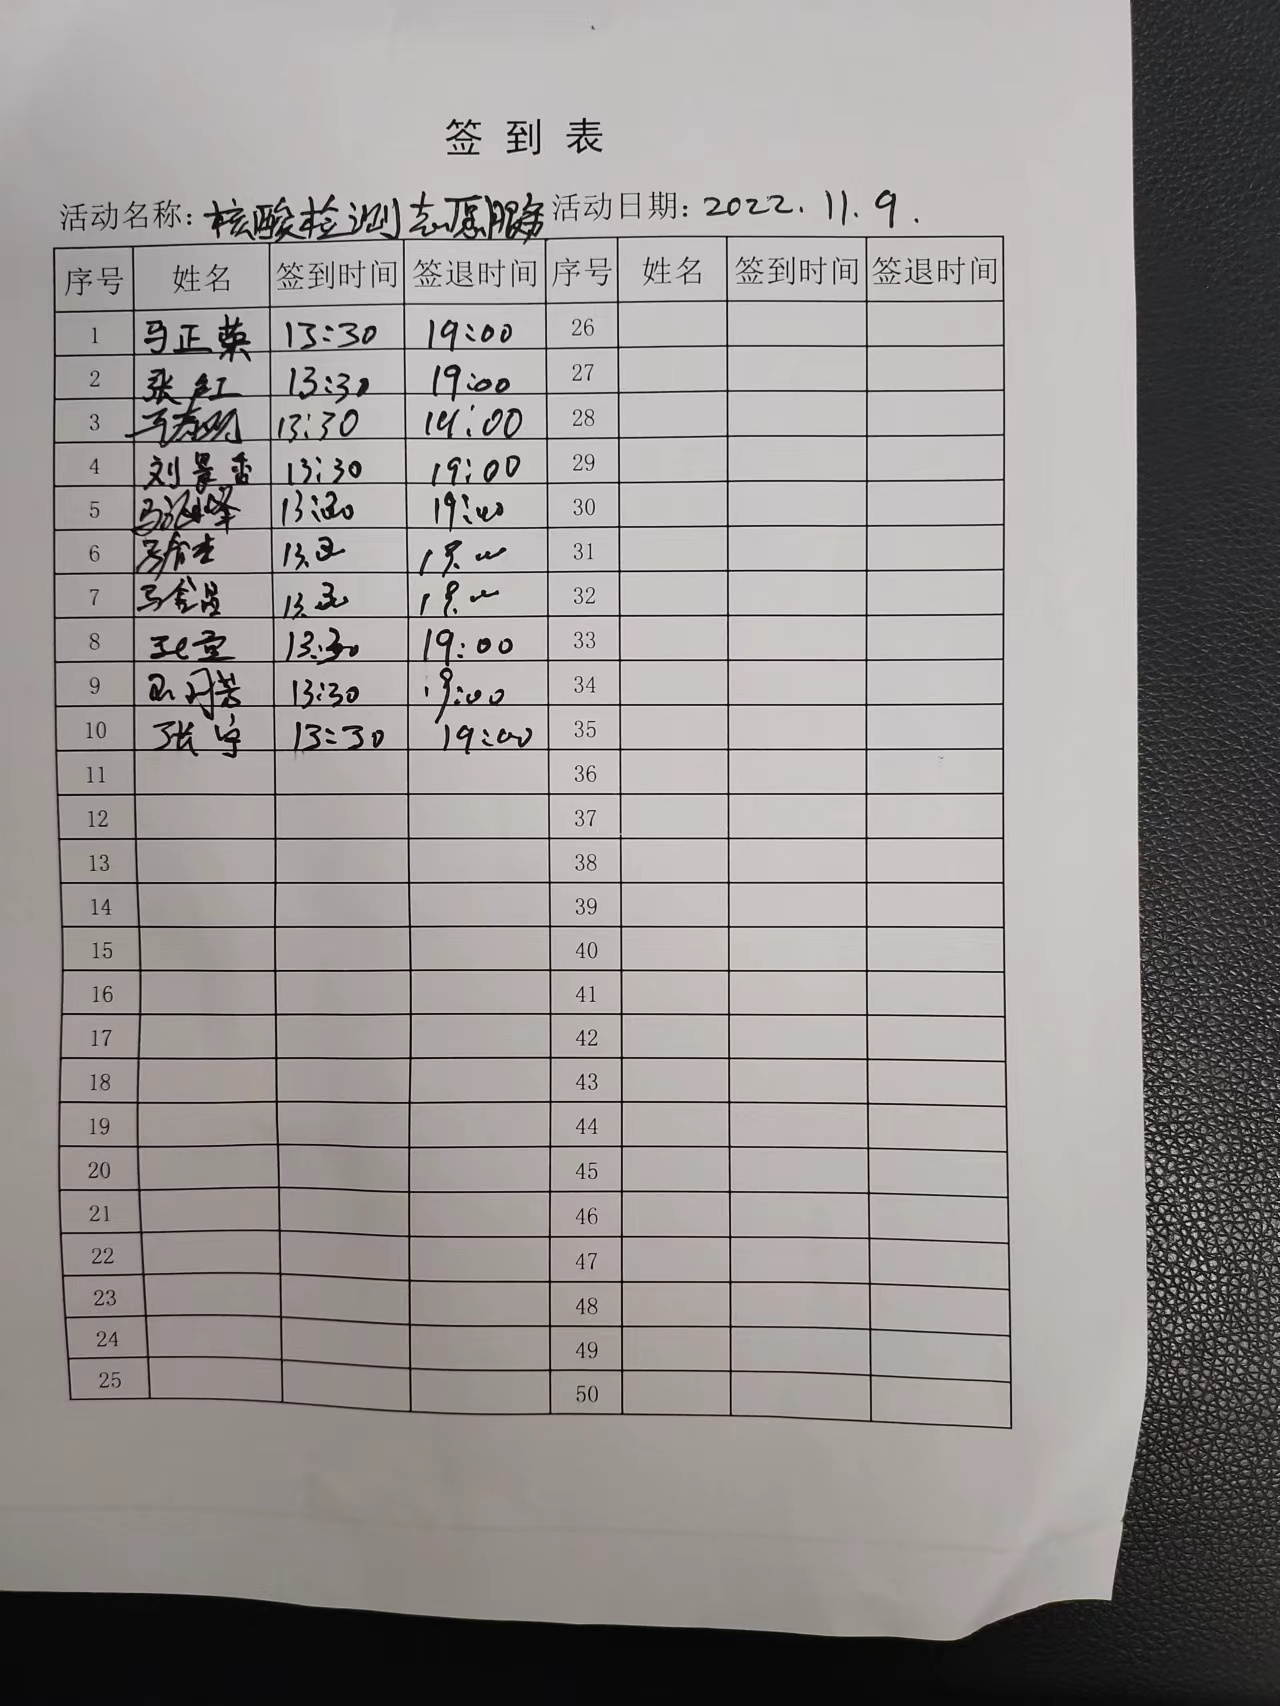 签到表
活动名称：核酸检测志愿服务 活动日期：2022.11.9.
序号 姓名 签到时间 签退时间 序号 姓名 签到时间 签退时间
1 马正英 13:30 19:00 26
2 张红 13:30 19:00 27
3 13:30 19:00 28
4 刘景香 13:30 19:00 29
5 13:30 19:00 30
6 13:30 19:00 31
7 马金昌 13:30 19:00 32
8 13:30 19:00 33
9 13:30 19:00 34
10 张宇 13:30 19:00 35
11 36
12 37
13 38
14 39
15 40
16 41
17 42
18 43
19 44
20 45
21 46
22 47
23 48
24 49
25 50